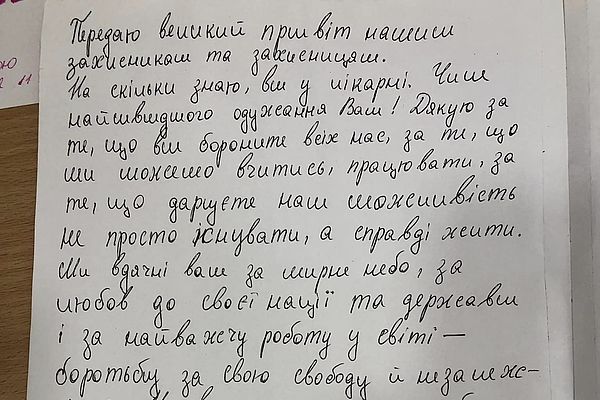 Передаю великий привіт нашим
захисникам та захисницям.
На скільки знаю, ви у лікарні. Чим
найшвидшого одужання Вам! Дякую за
те, що ви бороните всіх нас, за те, що
ми можемо вчитись, працювати, за
те, що даруєте нам можливість
не просто існувати, а справді жити.
Ми вдячні вам за мирне небо, за
любов до своєї нації та держави
і за найважчу роботу у світі —
боротьбу за свою свободу й незалеж-